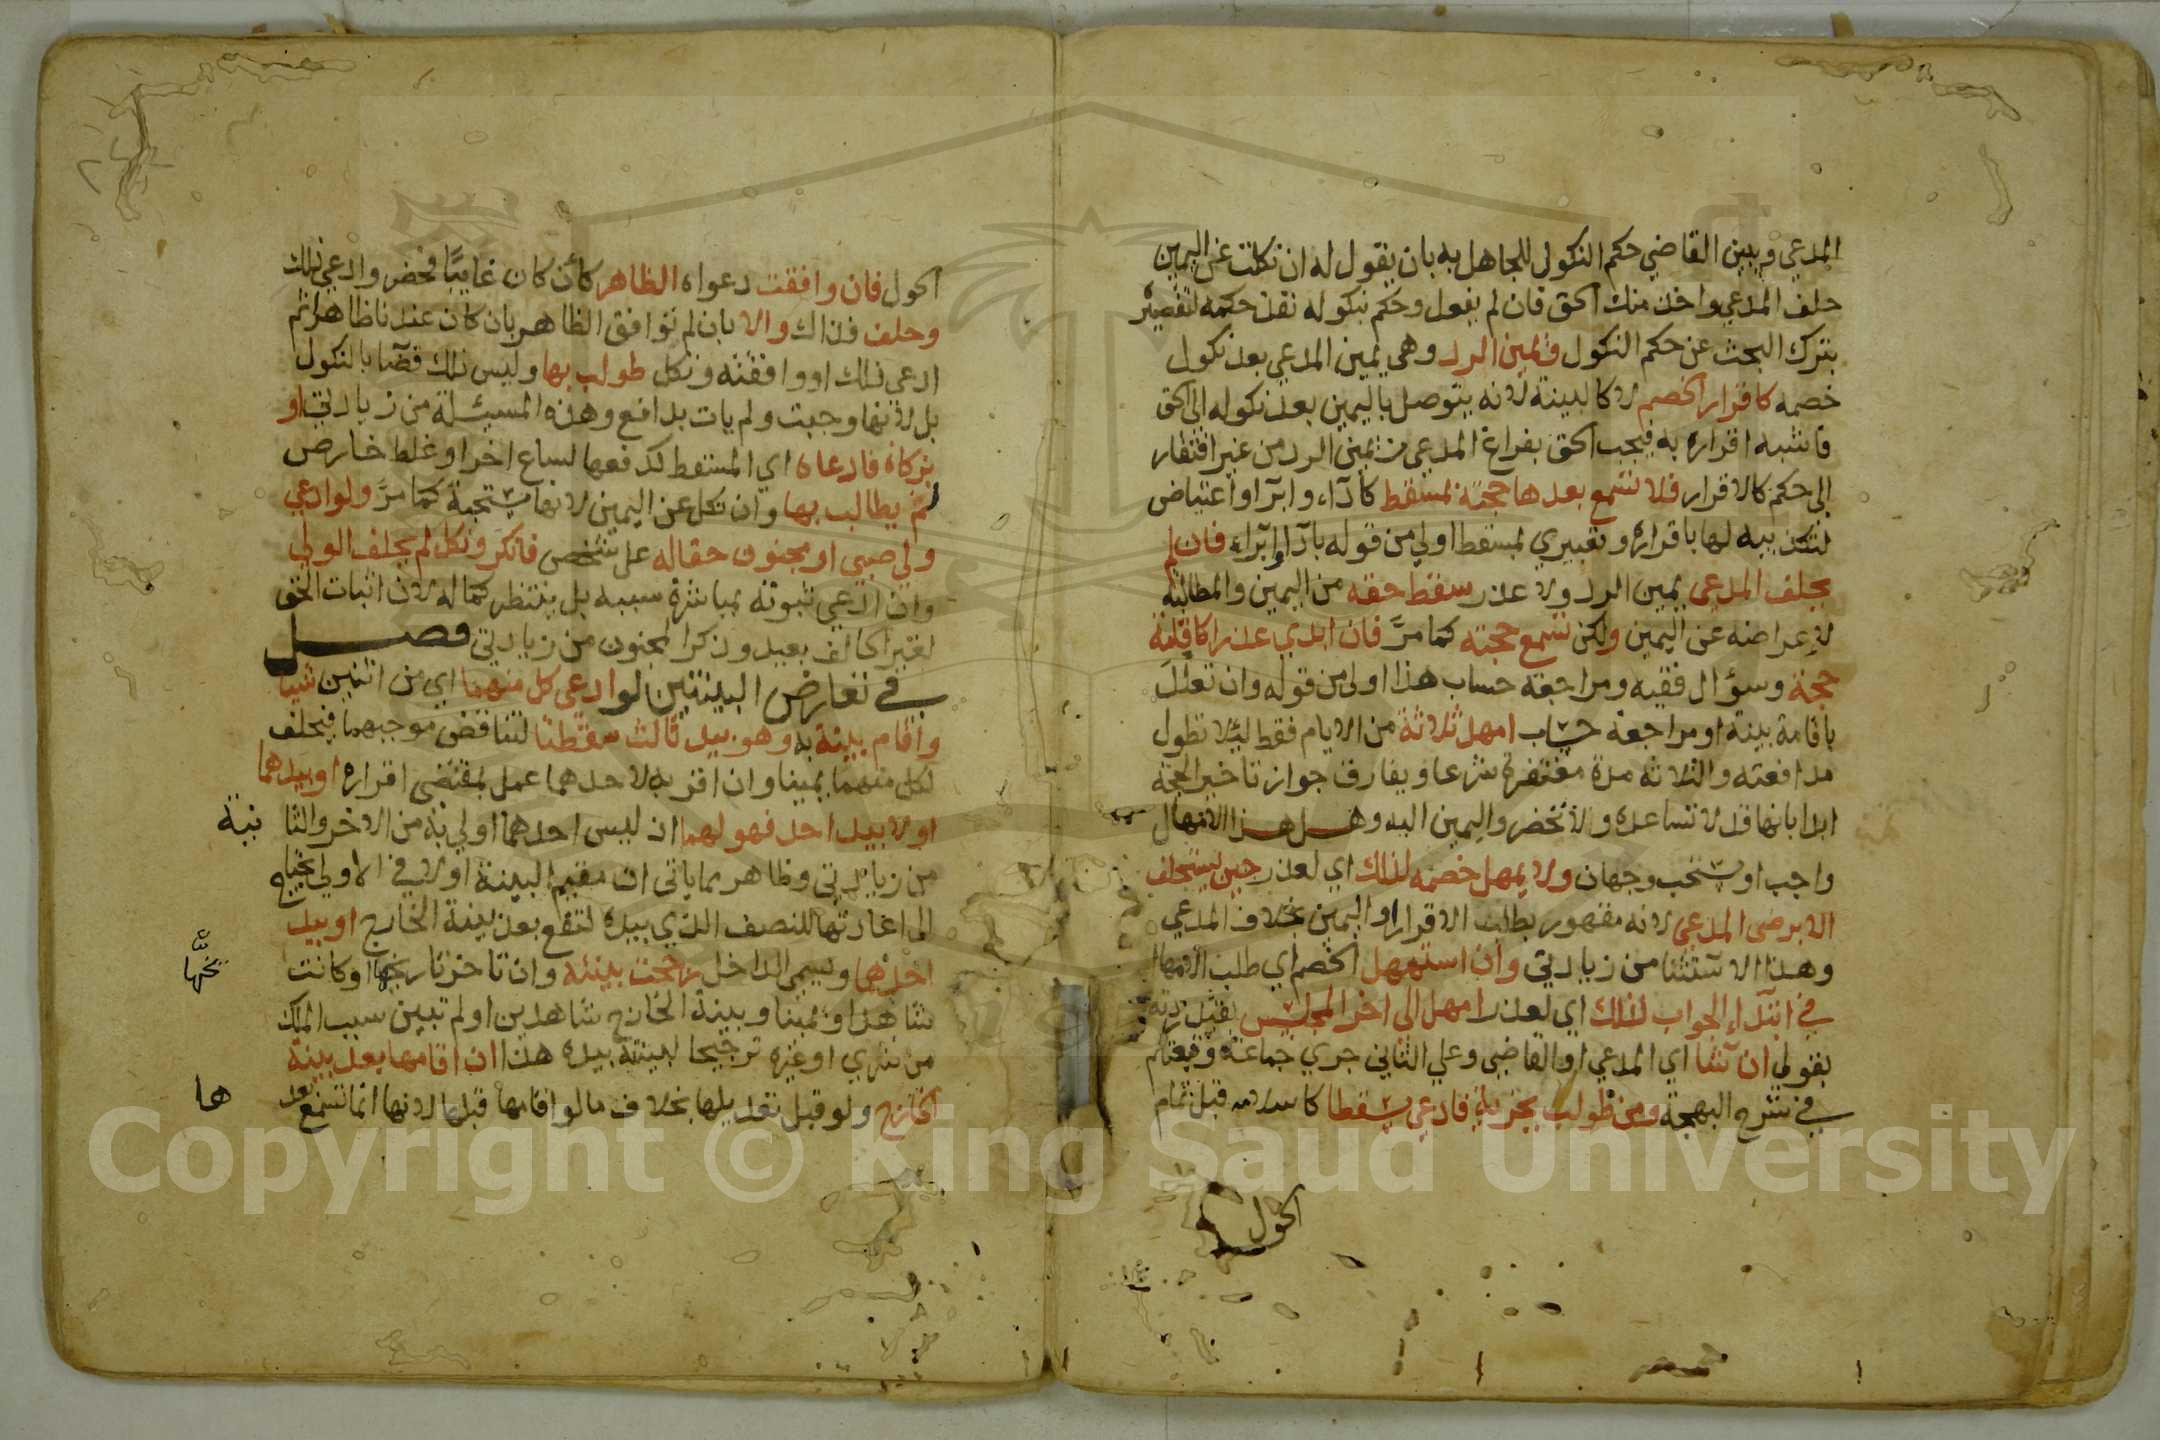 المدعي ويبين القاضي حكم النكول للجاهل به بان يقول له ان نكلت عن اليمين
حلف المدعي واخذ منك الحق فان لم يفعل وحكم بنكوله نفذ حكمه لتقصيره
بترك البحث عن حكم النكول ويمين الرد وهي يمين المدعي بعد نكول
خصمه كاقرار الخصم لا كالبينة لانه يتوصل باليمين بعد نكوله الى الحق
فاشبه اقراره به فيجب الحق بفراغ المدعي من يمين الرد من غير افتقار
الى حكم كالاقرار فلا تسمع بعدها حجته بمسقط كاداء وابراء واعتياض
لتكذيبه لها باقراره وتعبيري بمسقط اولى من قوله باداء او ابراء فان لم
يحلف المدعي يمين الرد ولا عذر سقط حقه من اليمين والمطالبة
لاعراضه عن اليمين ولكن تسمع حجته كما مر فان ابدي عذرا كاقامة
حجة وسؤال فقيه ومراجعة حساب هذا اولى من قوله وان تعلل
باقامة بينة او مراجعة حساب امهل ثلاثة من الايام فقط ليلا تطول
مدافعته والثلاثة مدة مغتفرة شرعا ويفارق جواز تاخير الحجة
ابدا بانها قد لا تساعده ولا تحضر واليمين اليه وهل هذا الامهال
واجب او مستحب وجهان ولا يمهل خصمه لذلك اي لعذر حين يستحلف
الا برضى المدعي لانه مقهور بطلب الاقرار او اليمين بخلاف المدعي
وهذا الاستثنا من زيادتي وان استمهل الخصم اي طلب الامهال
في ابتداء الجواب لذلك اي لعذر امهل الى اخر المجلس بقيد زدته
بقولي ان شا اي المدعي او القاضي وعلى الثاني جري جماعة وتبعتهم
في شرح البهجة ومن طولب بجزية فادعي مسقطا كاسلامه قبل تمام
الحول
الحول فان وافقت دعواه الظاهر كأن كان غايبا فحضر وادعي ذلك
وحلف فذاك والا بان لم توافق الظاهر بان كان عندنا ظاهرا ثم
ادعى ذلك او وافقته ونكل طولب بها وليس ذلك قضا بالنكول
بل لانها وجبت ولم يات بدافع وهذه المسئلة من زيادتي او
بزكاة فادعاه اي المسقط كدفعها لساع اخر او غلط خارص
لم يطالب بها وان نكل عن اليمين لانها مستحبة كما مر ولو ادعي
ولي صبي او مجنون حقا له على شخص فانكر ونكل لم يحلف الولي
وان ادعي ثبوته بمباشرة سببه بل ينتظر كماله لان اثبات الحق
لغير الحالف بعيد وذكر المجنون من زيادتي فصل
في تعارض البينتين لو ادعى كل منهما اي من اثنين شيا
واقام بينة به وهو بيد ثالث سقطتا لتناقض موجبهما فيحلف
لكل منهما يمينا وان اقر به لاحدهما عمل بمقتضى اقراره او بيدهما
او لا بيد احد فهو لهما اذ ليس احدهما اولى به من الاخر والثا
نية
من زيادتي وظاهر مما ياتي ان مقيم البينة اولا في الاولى يحتاج
الى اعادتها للنصف الذي بيده لتقع بعد بينة الخارج او بيد
احدهما ويسمى الداخل رجحت بينته وان تاخر تاريخها او كانت
يخها
شاهدا ويمينا وبينة الخارج شاهدين او لم تبين سبب الملك
من شري او غيره ترجيحا لبينته بيده هذا ان اقامها بعد بينة
الخارج ولو قبل تعديلها بخلاف ما لو اقامها قبلها لانها انما تسمع بعد
ها